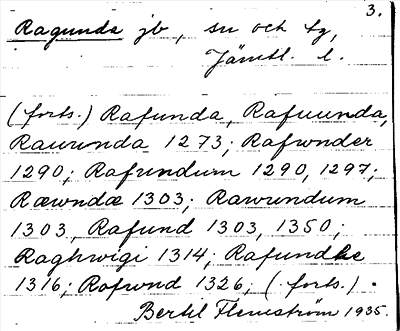 3.
Ragunda jb, sn och tg,
Jämtl. l.
(forts.) Rafunda, Rafuunda,
Rauunda 1273; Rafwnder
1290; Rafundum 1290, 1297;
Ræwndæ 1303; Rawundum
1303, Rafund 1303, 1350;
Raghwigi 1314; Rafundhe
1316; Rafwnd 1326; (forts.) .
Bertil Flemström 1935.